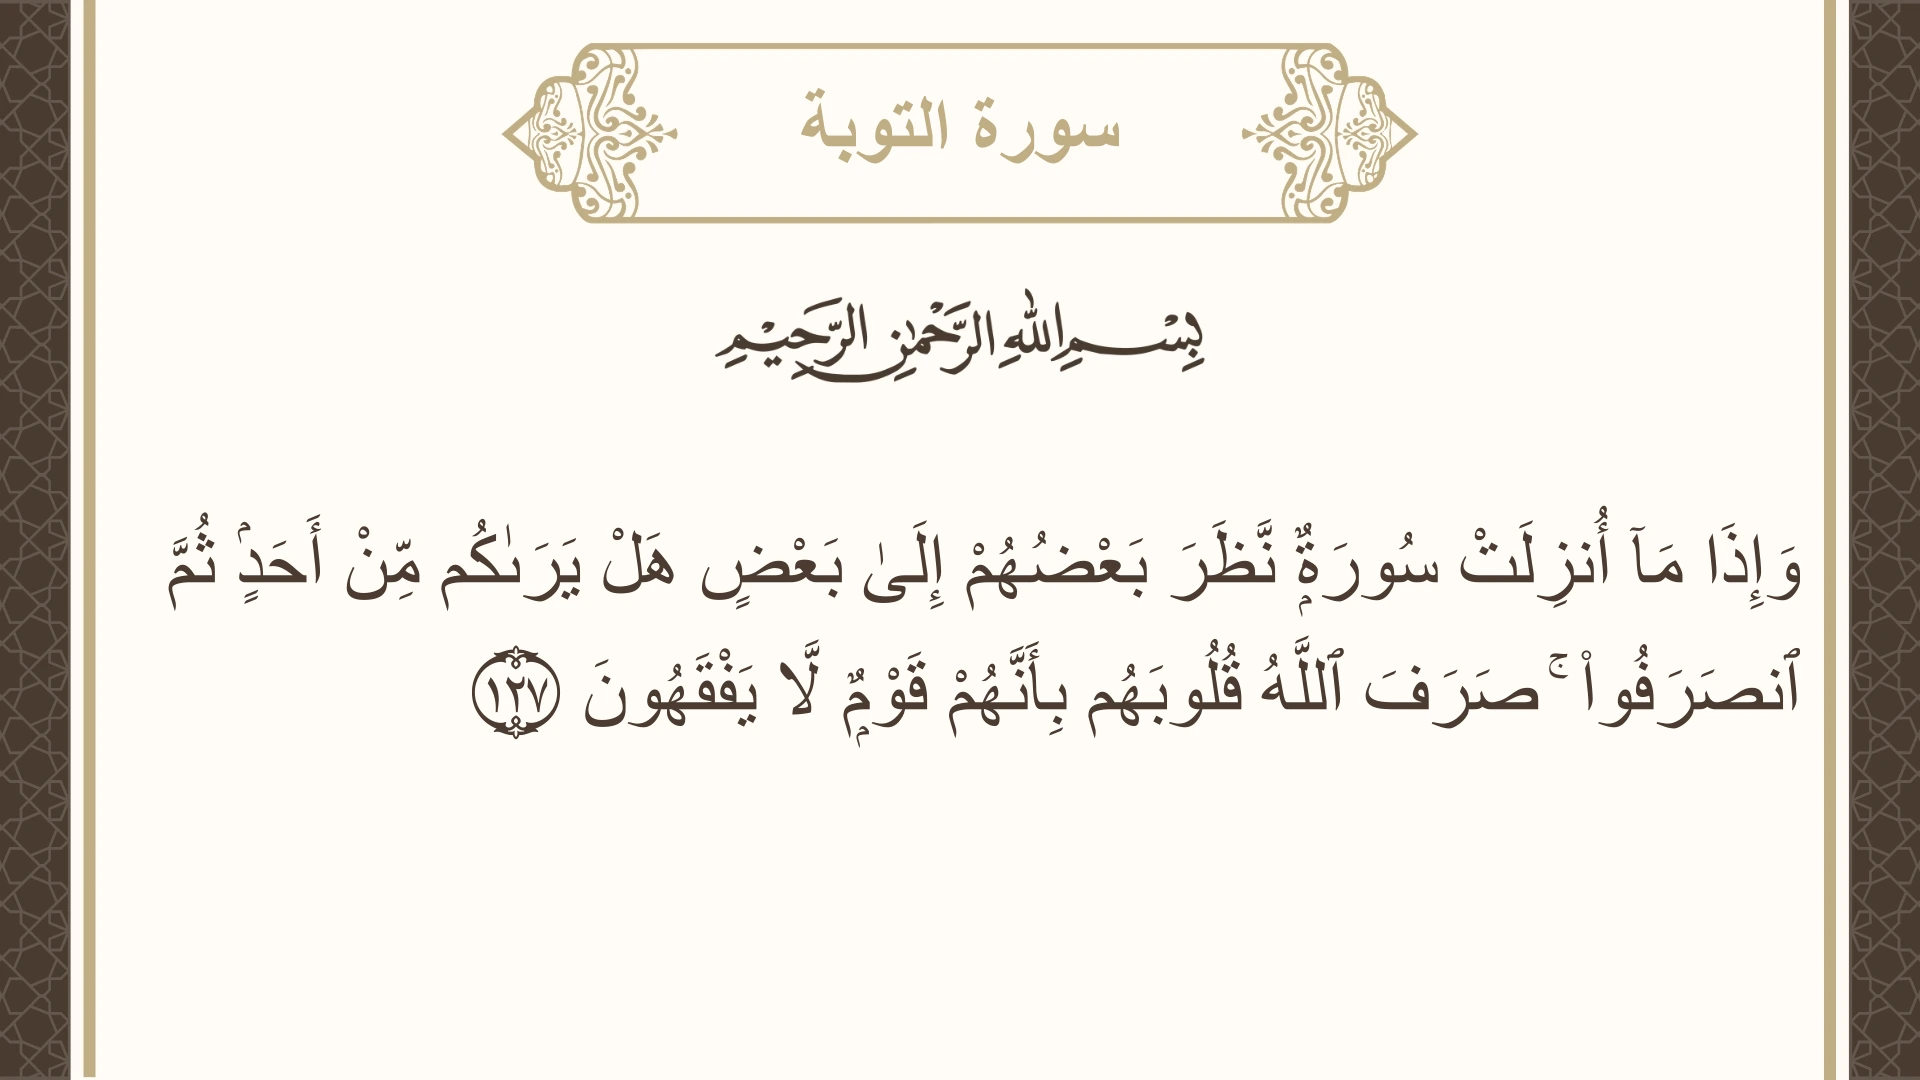 سورة التوبة
بِسْمِ اللهِ الرَّحْمٰنِ الرَّحِيْمِ
وَإِذَا مَآ أُنزِلَتْ سُورَةٌۭ نَّظَرَ بَعْضُهُمْ إِلَىٰ بَعْضٍ هَلْ يَرَىٰكُم مِّنْ أَحَدٍۢ ثُمَّ
ٱنصَرَفُوا۟ ۚ صَرَفَ ٱللَّهُ قُلُوبَهُم بِأَنَّهُمْ قَوْمٌۭ لَّا يَفْقَهُونَ ١٢٧